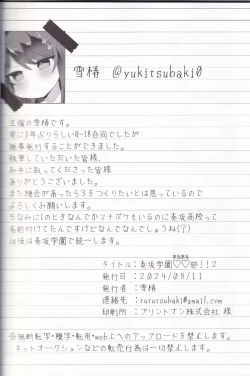 雪椿 @yukitsubaki0
主催の雪椿です。
実に3年ぶりらしいR-18合同でしたが
無事発行することができました。
執筆していただいた皆様、
お手に取ってくださった皆様
ありがとうございました。
また機会があったら3をつくりたいとは思っているので
よろしくお願いします。
ちなみに1のときなんでかマナポリもいるのに奏坂高校って
名前付けてたんですけどなんでなんでしょうね(?)
以後は奏坂学園で統一します。
まるまる
タイトル：奏坂学園♡♡部!!2
発行日：2024/08/11
発行者：雪椿
連絡先：tutursubaki@gmail.com
印刷所：プリントオン株式会社 様
※無断転写・複写・転用・web上へのアップロードを禁止します。
ネットオークションなどの転売行為は一切禁止します。